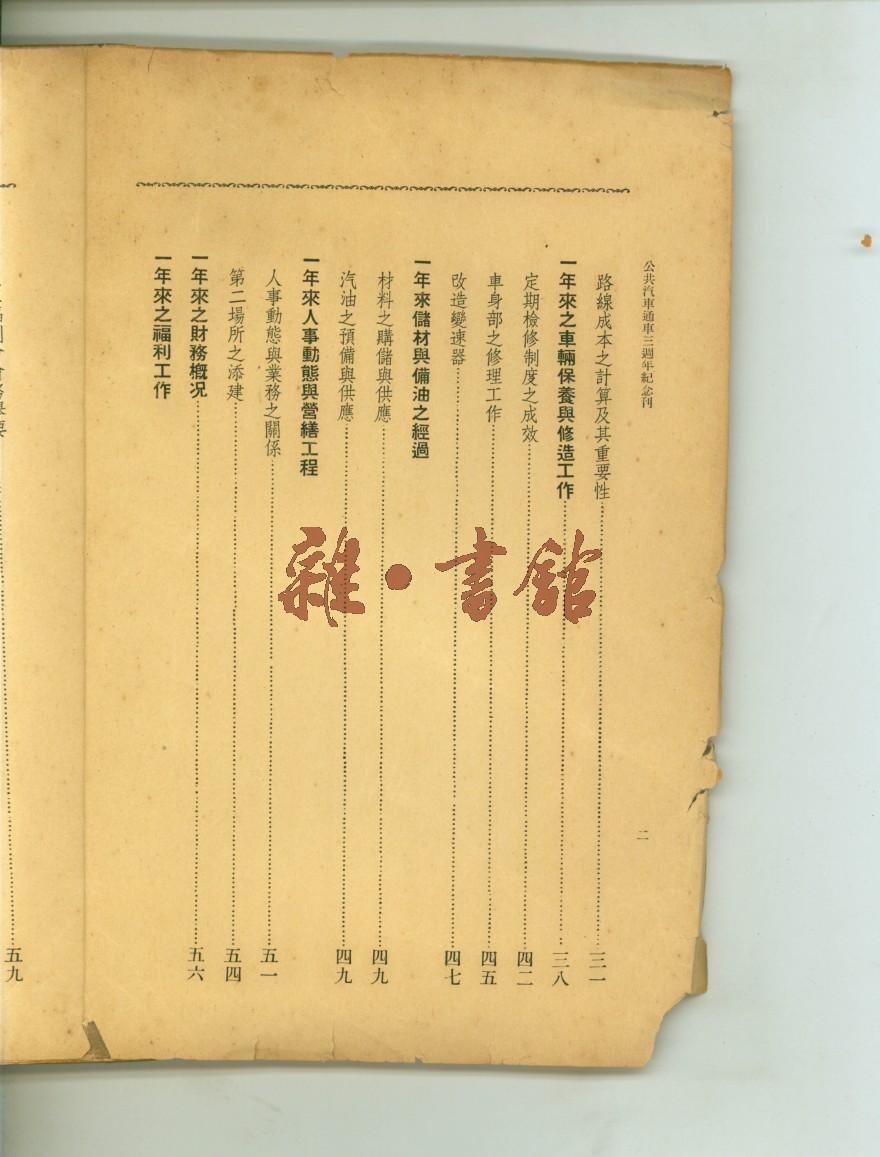 公共汽車通車三週年紀念刊
二
路線成本之計算及其重要性……三一
一年來之車輛保養與修造工作……三八
定期檢修制度之成效……四二
車身部之修理工作……四五
改造變速器……四七
一年來儲材與備油之經過
材料之購儲與供應……四九
汽油之預備與供應……四九
一年來人事動態與營繕工程
人事動態與業務之關係……五一
第二場所之添建……五四
一年來之財務概況……五六
一年來之福利工作
……五九
雜·書館